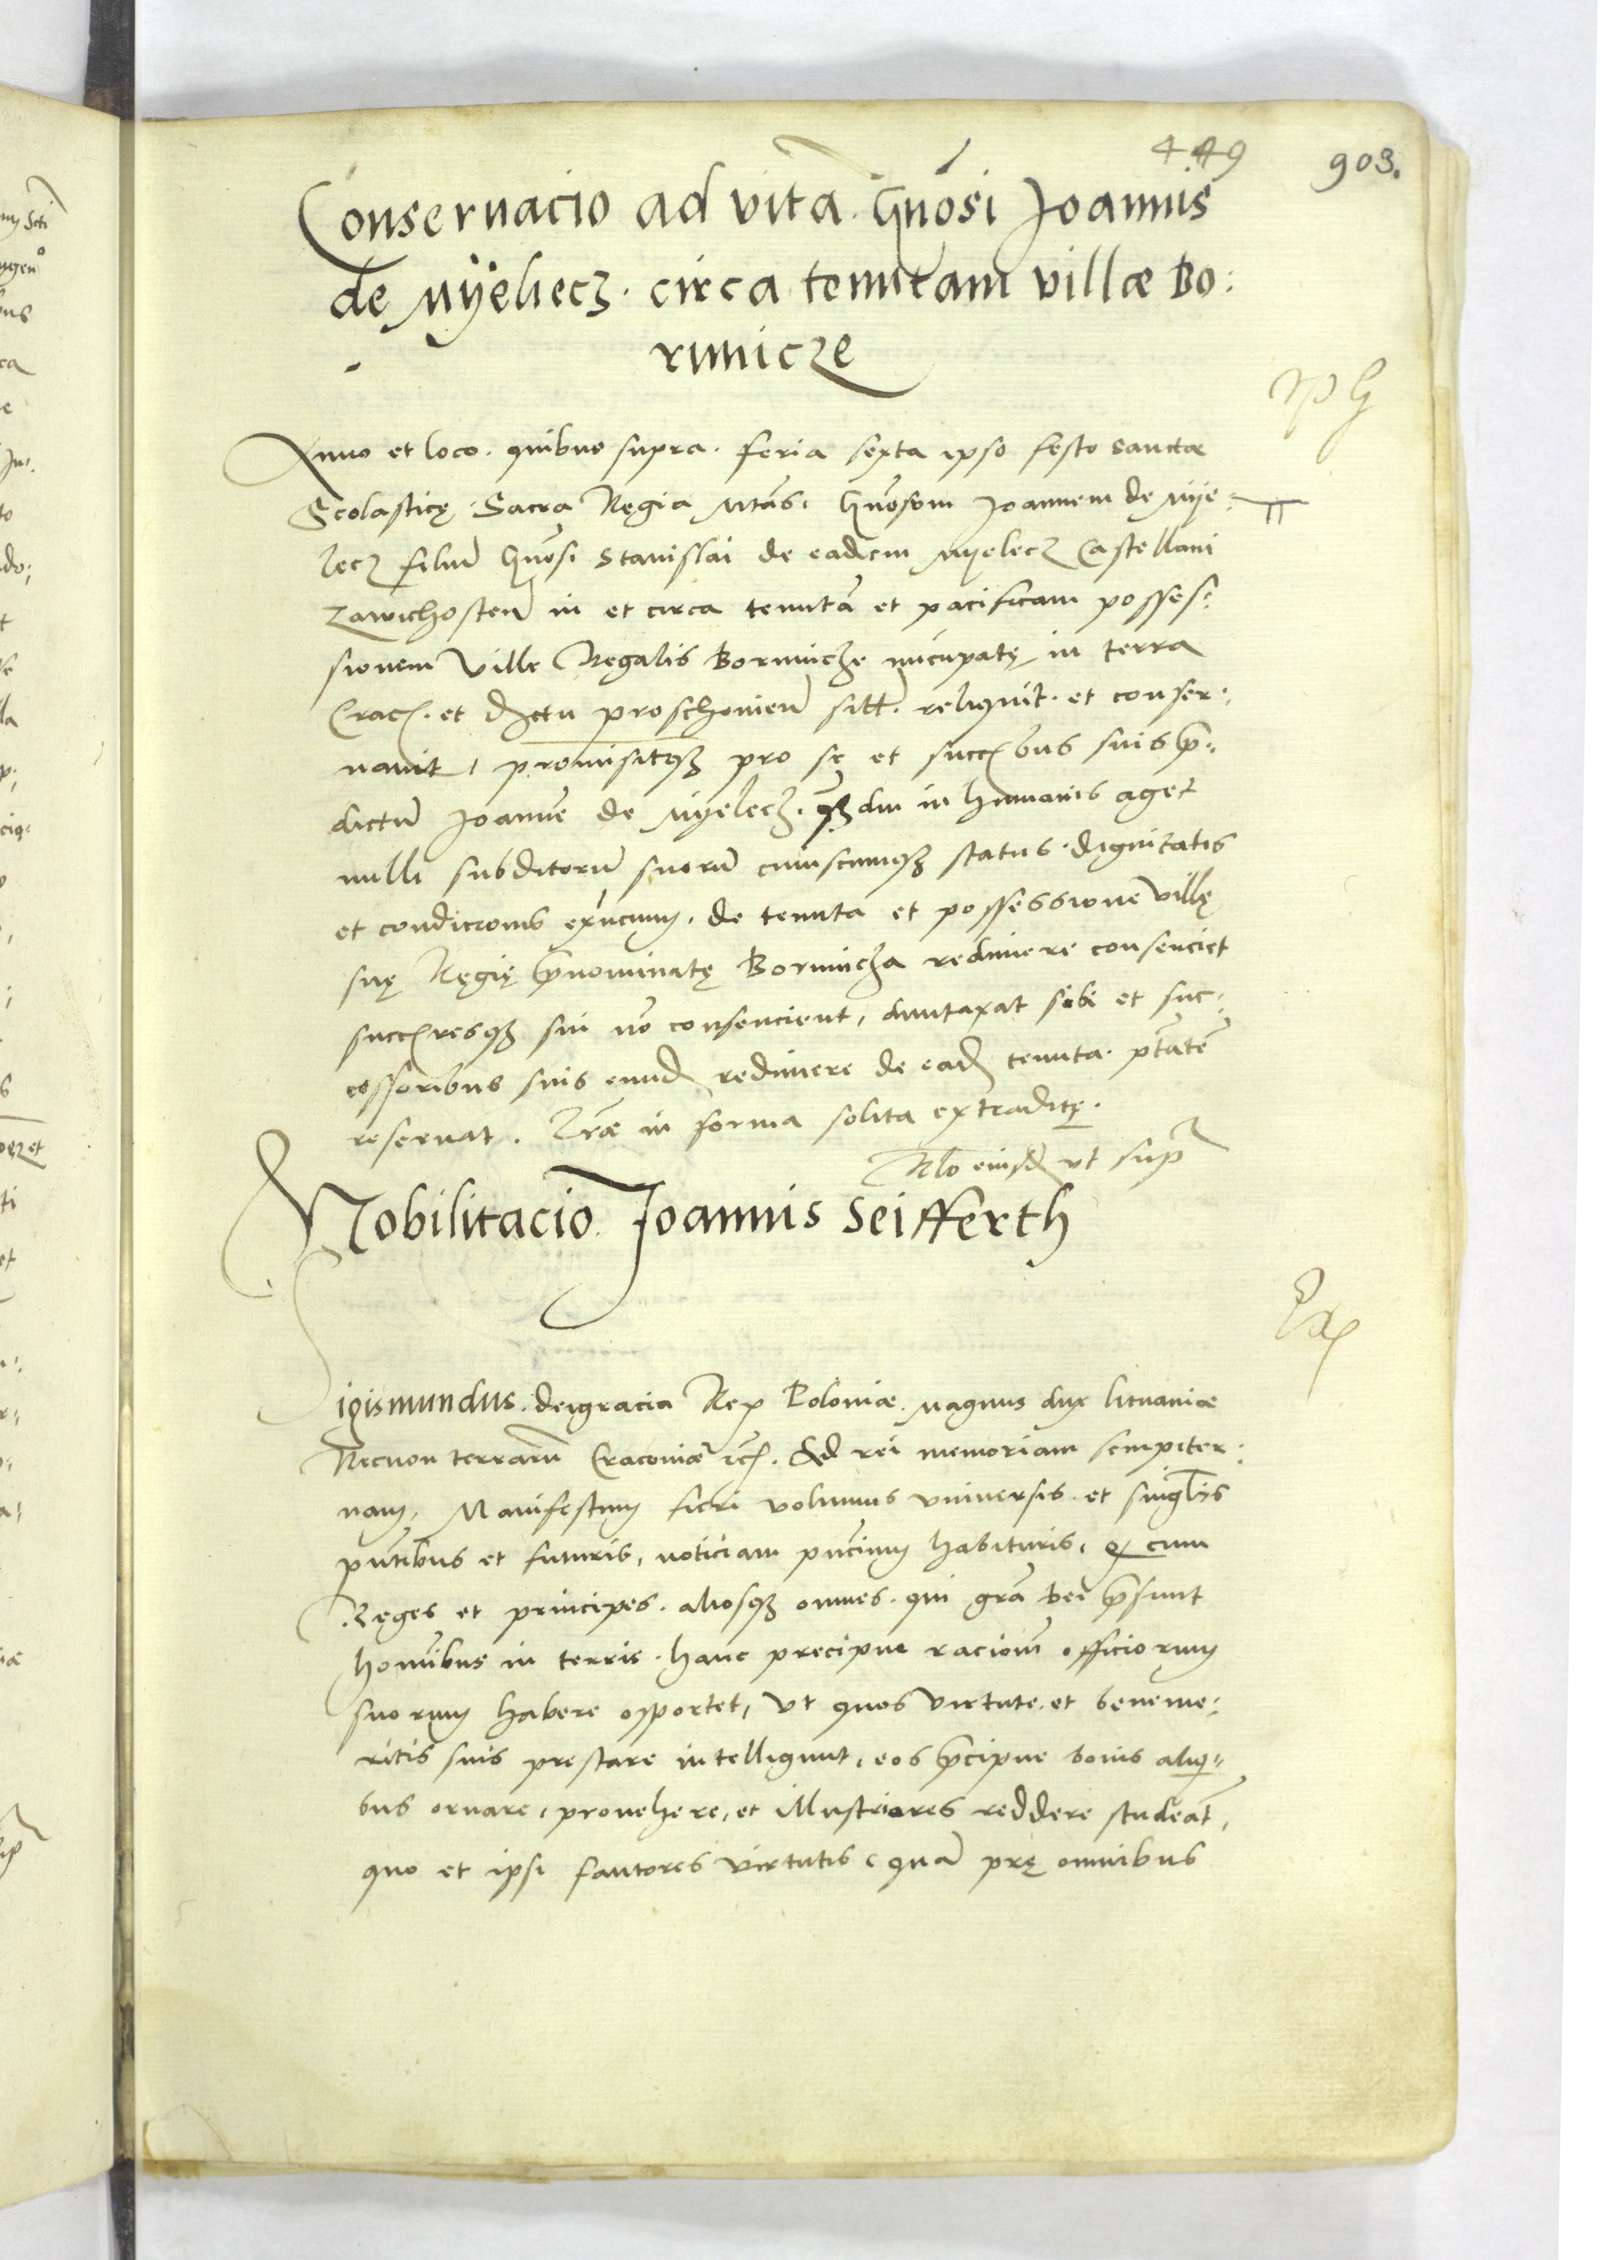 449 903.
Conseruacio ad vitã. Gnosi Joannis
de Myeliecz. circa tenutam villæ Bo:
runicze
Anno et loco. quibus supra. feria sexta ipso festo sanctæ
Scolasticę. Sacra Regia Mtas. Gnosum Joannem de Mye:
lecz filiũ Gnosi Stanislai de eadem Myelecz Castellani
Zawichosteñ in et circa tenutã et pacificam posses:
sionem Ville Regalis Borunicze nũcupatę in terra
Crac. et dictu proschouieñ sitt. reliquit. et conser:
nauit, promisitq3 pro se et succbus suis p̃:
dictũ Joannẽ de Myelecz. q3diu in humanis aget
nulli subditorũ suorũ cuiuscumq3 status. dignitatis
et condicionis existencium. de tenuta et possessione villę
suę Regię p̃nominatę Borunicza redimere consenciet
succresq3 sui nõ consencient, duntaxat sibi et suc:
cessoribus suis eund redimere de ead tenuta. ptãtẽ
reseruat. Lræ in forma solita extraditę.
Rlo eiusd vt sup
Nobilitacio. Joannis Seifferth
Sigismundus. dei gracia Rex Poloniæ. Magnus dux lituaniæ
Necnon terrarũ Cracouiæ etc. Ad rei memoriam sempiter:
nam. Manifestum fieri volumus vniuersis. et singlis
pñtibus et futuris, noticiam pñcium habituris. q cum
Reges et principes. aliosq3 omnes. qui grã Dei p̃sunt
hominibus in terris. hanc precipue racionẽ officiorum
suorum habere opportet, vt quos virtute. et beneme:
ritis suis prestare intelligunt, eos p̃cipue bonis aliq:
bus ornare, prouehere, et illustriores reddere studeãt,
quo et ipsi fautores virtutis, quã prę omnibus